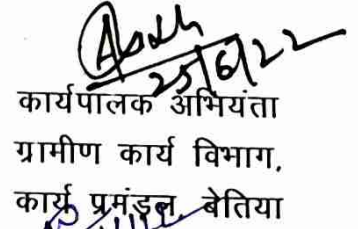 25/6/22
कार्यपालक अभियंता
ग्रामीण कार्य विभाग,
कार्य प्रमंडल, बेतिया